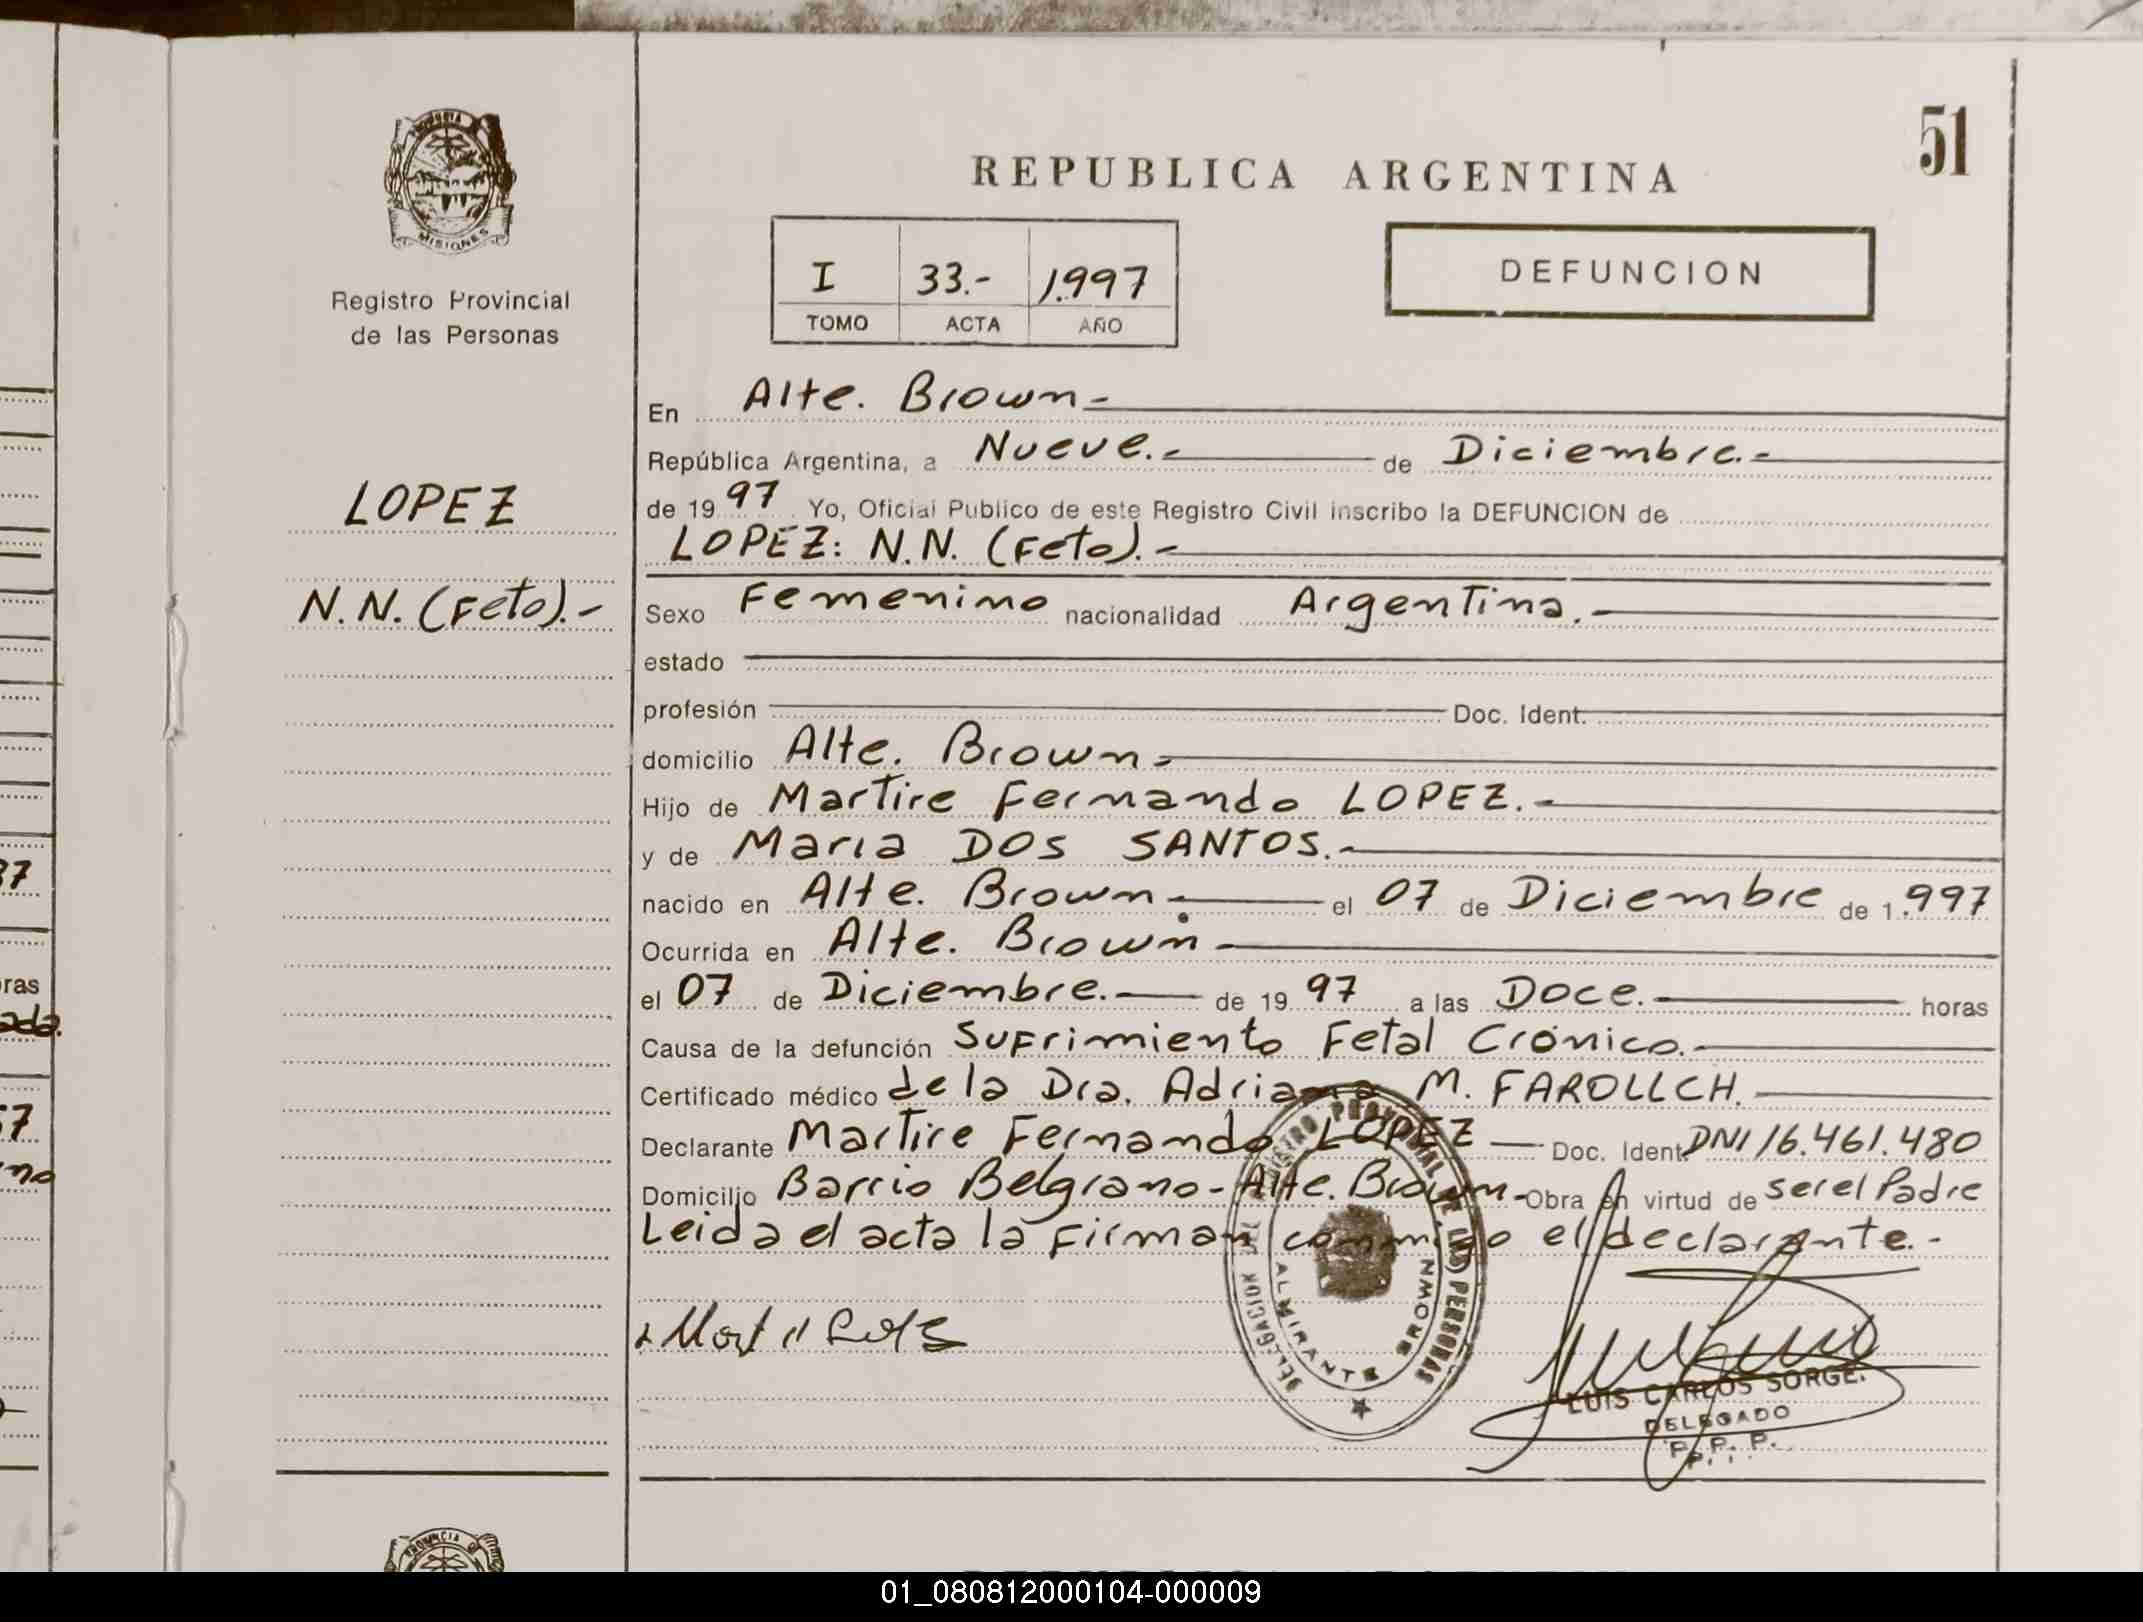 51
REPUBLICA ARGENTINA
PROVINCIA
MISIONES
Registro Provincial
de las Personas
I 33.- 1.997
TOMO ACTA AÑO
DEFUNCION
LOPEZ
N.N. (Feto).-
En Alte. Brown-
República Argentina, a Nueve.- de Diciembre.-
de 19 97 Yo, Oficial Publico de este Registro Civil inscribo la DEFUNCION de
LOPEZ: N.N. (Feto).-
Sexo Femenino nacionalidad Argentina.-
estado
profesión Doc. Ident.
domicilio Alte. Brown-
Hijo de Martire Fernando LOPEZ.-
y de Maria DOS SANTOS.-
nacido en Alte. Brown- el 07 de Diciembre de 1.997
Ocurrida en Alte. Brown-
el 07 de Diciembre.- de 19 97 a las Doce.- horas
Causa de la defunción Sufrimiento Fetal Crónico.-
Certificado médico de la Dra. Adriana M. FAROLLCH.
Declarante Martire Fernando LOPEZ Doc. Ident. DNI 16.461.480
Domicilio Barrio Belgrano-Alte. Brown.- Obra en virtud de ser el Padre
Leida el acta la firman conmigo el declarante.-
DELEGACION DEL REGISTRO PROVINCIAL DE LAS PERSONAS
ALMIRANTE BROWN
LUIS CARLOS SORGE.
DELEGADO
P. P. P.
37
ras
ada.
57
no
PROVINCIA
01_080812000104-000009